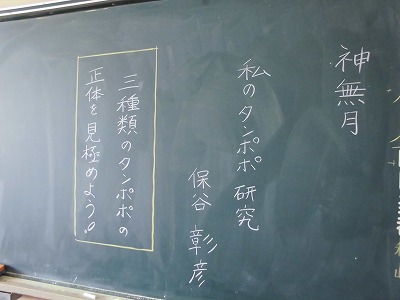 神無月
私のタンポポ研究
保谷 彰彦
三種類のタンポポの
正体を見極めよう!